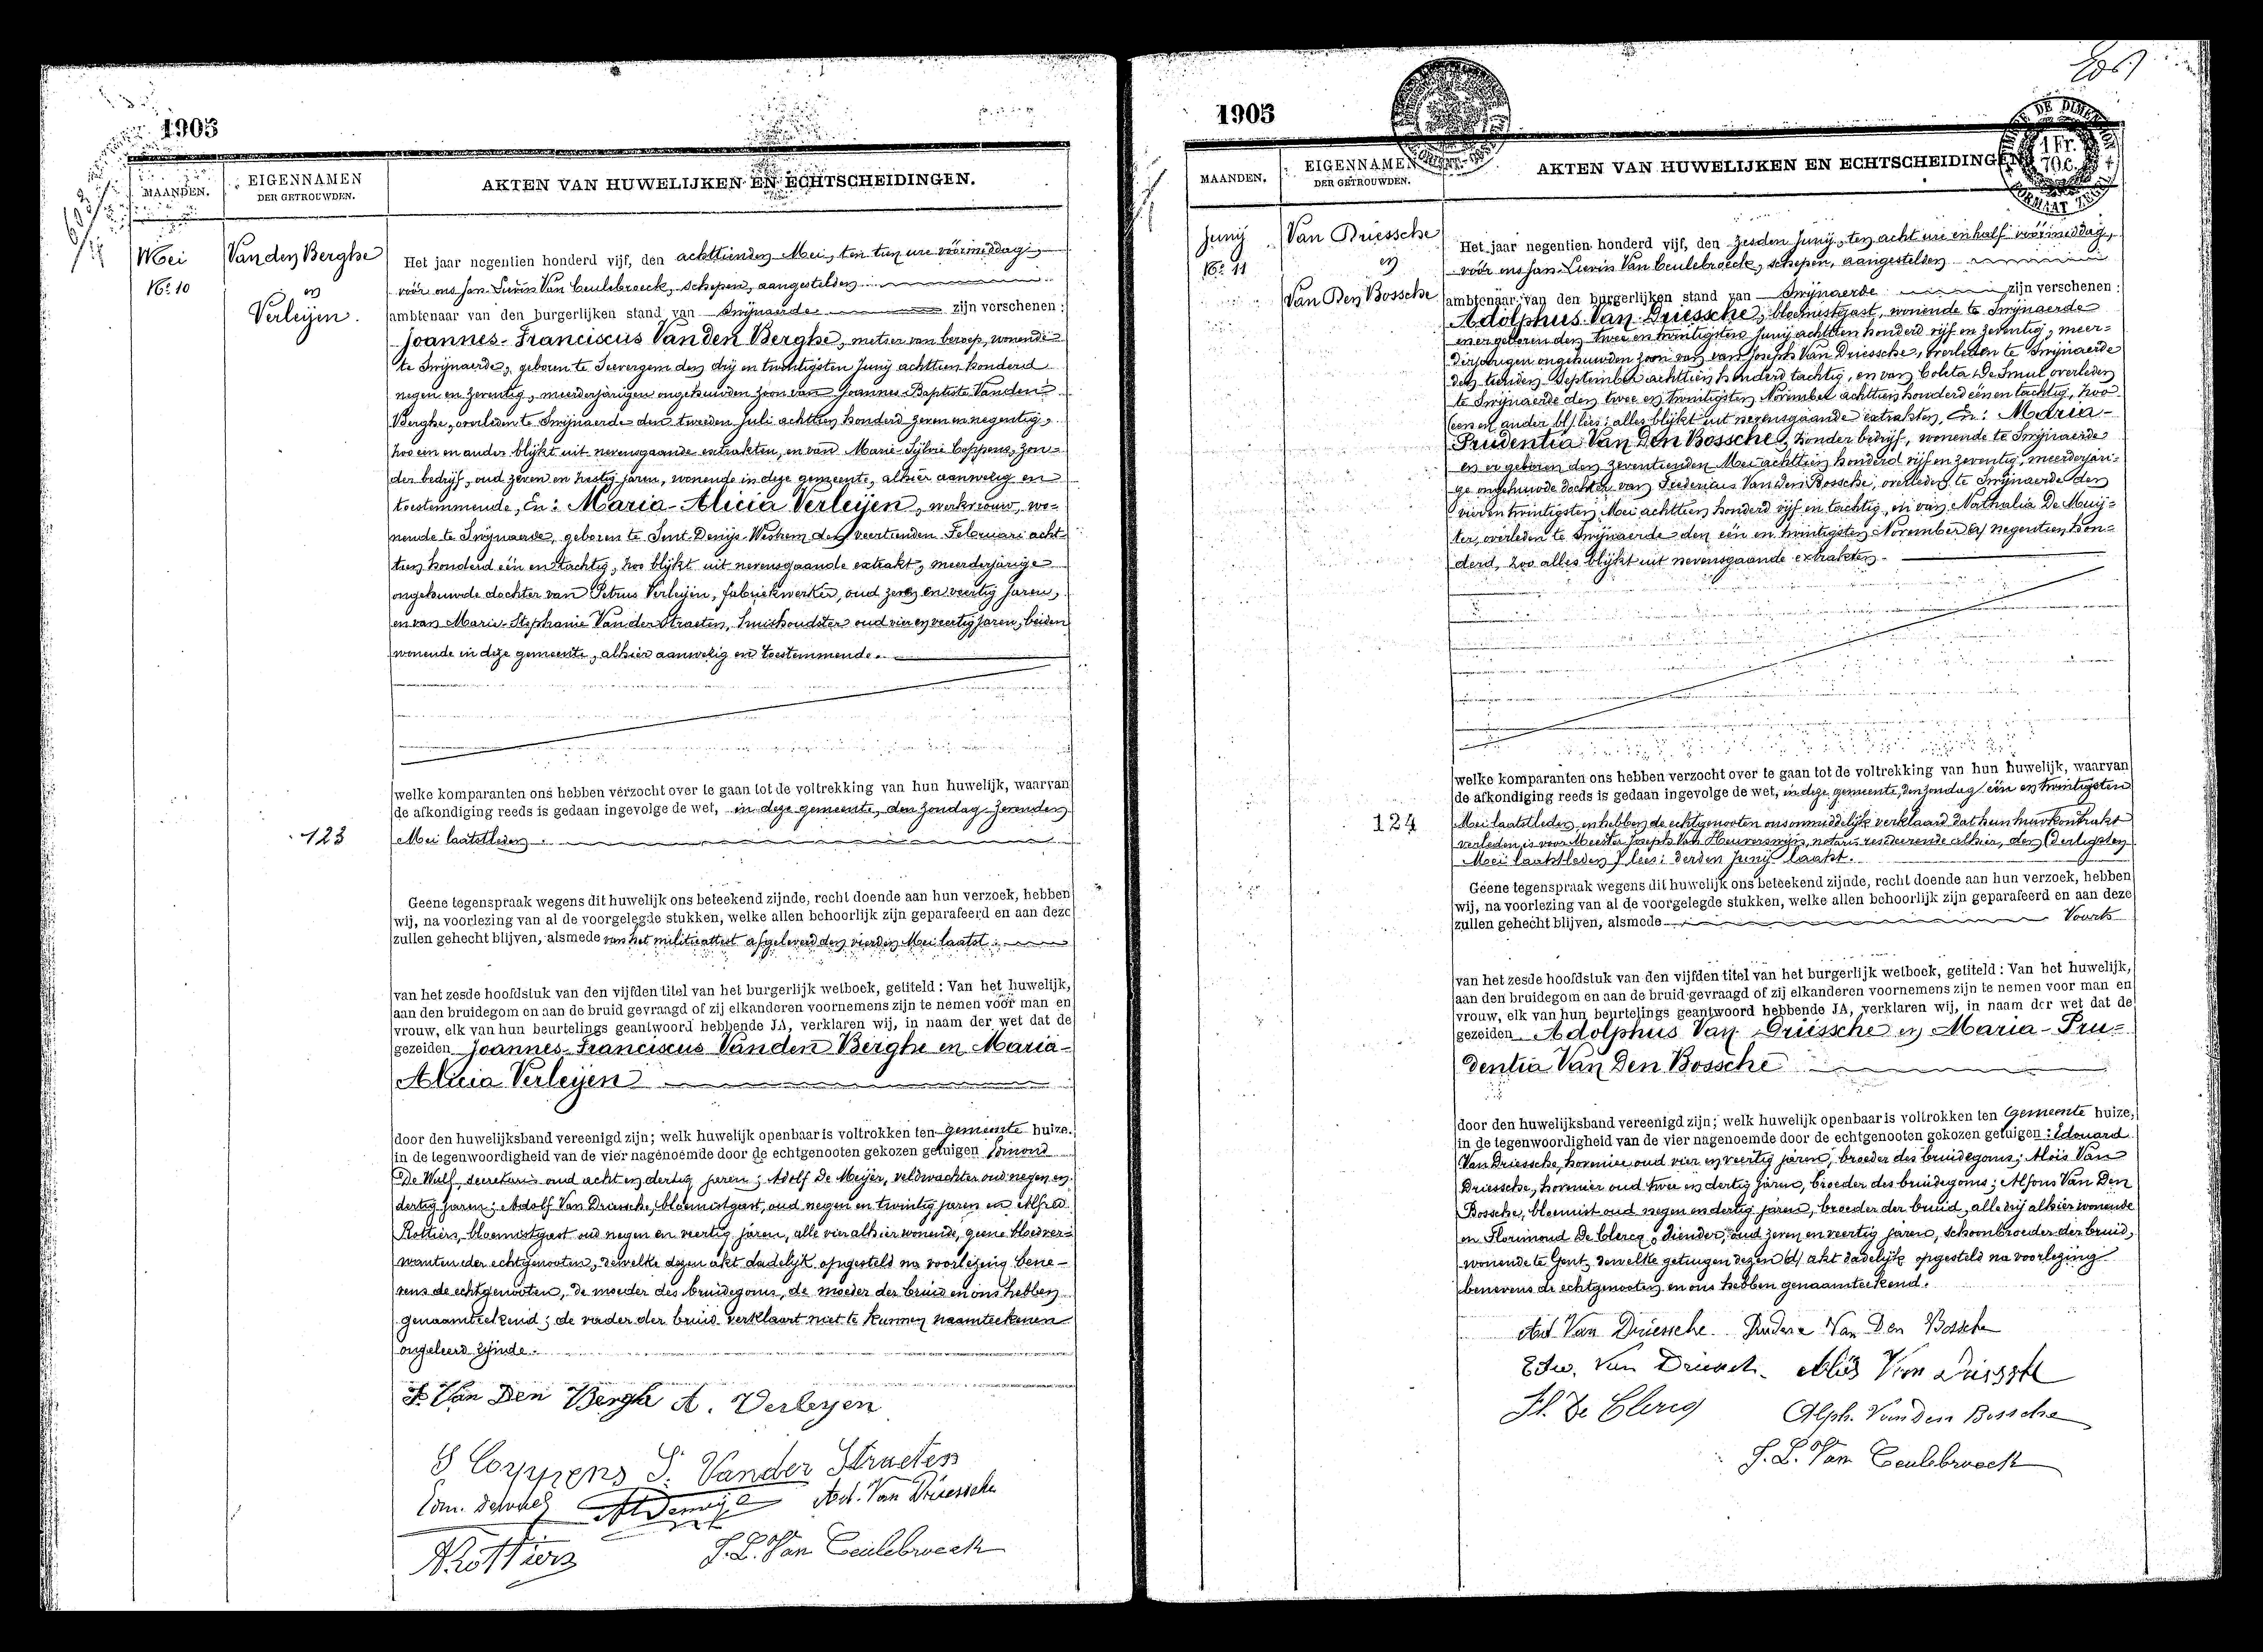 1905
MAANDEN.
EIGENNAMEN
DER GETROUWDEN.
AKTEN VAN HUWELIJKEN EN ECHTSCHEIDINGEN.
Mei
No. 10
Vanden Berghe
en
Verleijen.
Het jaar negentien honderd vijf, den achttienden Mei, ten tien ure vóórmiddag,
vóór ons Jan-Livin Van Ceulebroeck, schepen, aangestelden
ambtenaar van den burgerlijken stand van Swijnaerde zijn verschenen:
Joannes-Franciscus Vanden Berghe, metser van beroep, wonende
te Swijnaerde, geboren te Seevergem den drij en twintigsten Junij achttien honderd
negen en zeventig, meerderjarigen ongehuwden zoon van Joannes-Baptiste Vanden
Berghe, overleden te Swijnaerde den tweeden Juli achttien honderd zeven en negentig,
hoo een en ander blijkt uit nevensgaande extrakten, en van Marie-Sylvie Coppens, zon-
der bedrijf, oud zeven en zestig jaren, wonende in deze gemeente, alhier aanwezig en
toestemmende, En: Maria-Alicia Verleijen, werkvrouw, wo-
nende te Swijnaerde, geboren te Sint-Denijs-Westrem den veertienden Februari acht-
tien honderd één en tachtig, zoo blijkt uit nevensgaande extrakt, meerderjarige
ongehuwde dochter van Petrus Verleijen, fabriekwerker, oud zeven en veertig jaren,
en van Marie-Stephanie Vander Straeten, huishoudster oud vier en veertig jaren, beiden
wonende in deze gemeente, alhier aanwezig en toestemmende.
welke komparanten ons hebben verzocht over te gaan tot de voltrekking van hun huwelijk, waarvan
de afkondiging reeds is gedaan ingevolge de wet, in deze gemeente, den zondag zevenden
123
Mei laatstleden.
Geene tegenspraak wegens dit huwelijk ons beteekend zijnde, recht doende aan hun verzoek, hebben
wij, na voorlezing van al de voorgelegde stukken, welke allen behoorlijk zijn geparafeerd en aan deze
zullen gehecht blijven, alsmede van het militieattest afgeleverd den vierden Mei laatst.
van het zesde hoofdstuk van den vijfden titel van het burgerlijk wetboek, getiteld: Van het huwelijk,
aan den bruidegom en aan de bruid gevraagd of zij elkanderen voornemens zijn te nemen vóór man en
vrouw, elk van hun beurtelings geantwoord hebbende JA, verklaren wij, in naam der wet dat de
gezeiden Joannes-Franciscus Vanden Berghe en Maria-
Alicia Verleijen
door den huwelijksband vereenigd zijn; welk huwelijk openbaar is voltrokken ten gemeente huize,
in de tegenwoordigheid van de vier nagenoemde door de echtgenooten gekozen getuigen Edmond
De Wulf, secretaris oud acht en dertig jaren; Adolf De Meijer, veldwachter oud negen en
dertig jaren; Adolf Van Driessche, bloemistgast, oud negen en twintig jaren en Alfred
Rottiers, bloemistgast oud negen en veertig jaren, alle vier alhier wonende, geene bloedver-
wanten der echtgenooten, dewelke dezen akt dadelijk opgesteld na voorlezing bene-
vens de echtgenooten, de moeder des bruidegoms, de moeder der bruid en ons hebben
genaamteekend; de vader der bruid verklaart niet te kunnen naamteekenen
ongeleerd zijnde.
F. Van Den Berghe A. Verleyen
S Coppens S. Vander Straeten
Ad. Van Driessche
ARottiers J.L. Van Ceulebroeck
1905
MAANDEN.
EIGENNAMEN
DER GETROUWDEN.
AKTEN VAN HUWELIJKEN EN ECHTSCHEIDINGEN
1 Fr.
70 c.
Junij
No. 11
Van Driessche
en
Van Den Bossche
Het jaar negentien honderd vijf, den zesden Junij, ten acht ure en half vóórmiddag,
vóór ons Jan-Lievin Van Ceulebroeck, schepen, aangestelden
ambtenaar van den burgerlijken stand van Swijnaerde zijn verschenen:
Adolphus Van Driessche, bloemistgast, wonende te Swijnaerde
en er geboren den twee en twintigsten Junij achttien honderd vijf en zeventig, meer-
derjarigen ongehuwden zoon van van Joseph Van Driessche, overleden te Swijnaerde
den tienden September achttien honderd tachtig, en van Coleta De Smul overleden
te Swijnaerde den twee en twintigsten November achttien honderd één en tachtig, hoo
(een en ander bl) lees: alles blijkt uit nevensgaande extrakten, En: Maria-
Prudentia Van Den Bossche, zonder bedrijf, wonende te Swijnaerde
en er geboren den zeventienden Mei achttien honderd vijf en zeventig, meerderjari-
ge ongehuwde dochter van Fredericus Van den Bossche, overleden te Swijnaerde den
vier en twintigsten Mei achttien honderd vijf en tachtig, en van Nathalia De Muij-
ter, overleden te Swijnaerde den één en twintigsten November negentien hon-
derd, zoo alles blijkt uit nevensgaande extrakten.
welke komparanten ons hebben verzocht over te gaan tot de voltrekking van hun huwelijk, waarvan
de afkondiging reeds is gedaan ingevolge de wet, in deze gemeente, den zondag één en twintigsten
124
Mei laatstleden, en hebben de echtgenooten onsonmiddelijk verklaard dat hun huwkontrakt
verleden is voor Meester Joseph Van Heuverswijn, notaris resideerende alhier, den (dertigsten
Mei laatstleden) lees: derden Junij laatst.
Geene tegenspraak wegens dit huwelijk ons beteekend zijnde, recht doende aan hun verzoek, hebben
wij, na voorlezing van al de voorgelegde stukken, welke allen behoorlijk zijn geparafeerd en aan deze
zullen gehecht blijven, alsmede
van het zesde hoofdstuk van den vijfden titel van het burgerlijk wetboek, getiteld: Van het huwelijk,
aan den bruidegom en aan de bruid gevraagd of zij elkanderen voornemens zijn te nemen voor man en
vrouw, elk van hun beurtelings geantwoord hebbende JA, verklaren wij, in naam der wet dat de
gezeiden Adolphus Van Driessche en Maria-Pru-
dentia Van Den Bossche
door den huwelijksband vereenigd zijn; welk huwelijk openbaar is voltrokken ten gemeente huize,
in de tegenwoordigheid van de vier nagenoemde door de echtgenooten gekozen getuigen: Edouard
Van Driessche, hovenier oud vier en veertig jaren, broeder des bruidegoms; Aloïs Van
Driessche, hovenier oud twee en dertig jaren, broeder des bruidegoms; Alfons Van Den
Bossche, bloemist oud negen en dertig jaren, broeder der bruid, alle drij alhier wonende
en Florimond De Clercq, diender, oud zeven en veertig jaren, schoonbroeder der bruid,
wonende te Gent, dewelke getuigen dezen akt dadelijk opgesteld na voorlezing
benevens de echtgenooten en ons hebben genaamteekend.
Ad. Van Driessche Van Den Bossche
Edw. Van Driessch. Aloïs Van Driessche
Fl. De Clercq Alph. Vanden Bossche
J. L. Van Ceulebroeck